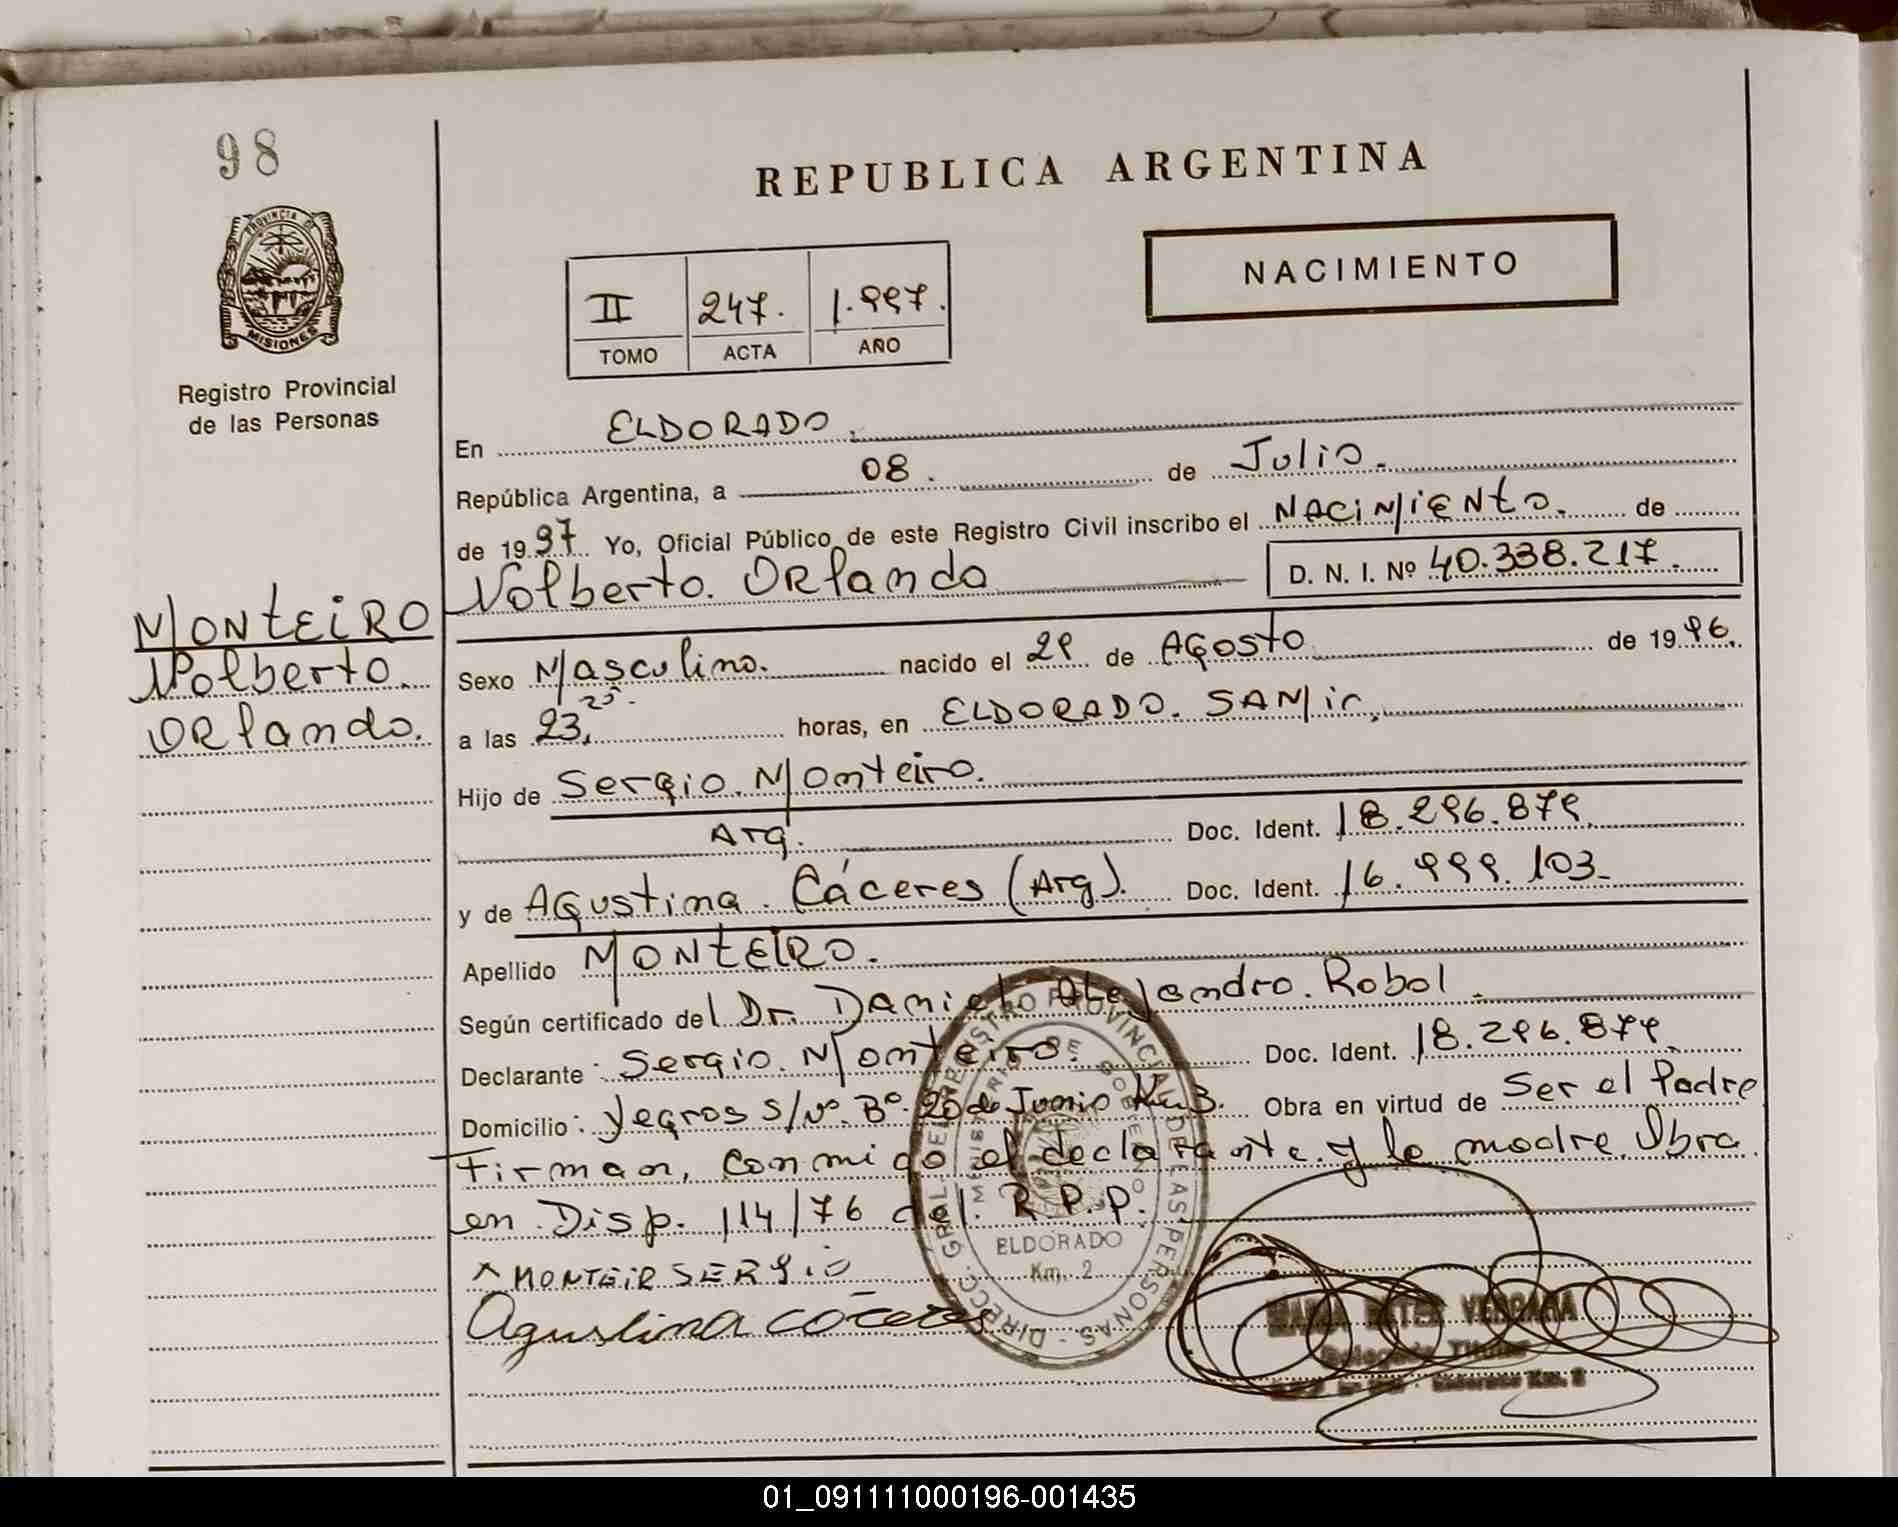 98
REPUBLICA ARGENTINA
PROVINCIA DE
MISIONES
Registro Provincial
de las Personas
II 247. 1.997.
TOMO ACTA AÑO
NACIMIENTO
En ELDORADO.
República Argentina, a 08. de Julio.
de 1997 Yo, Oficial Público de este Registro Civil inscribo el NACiMiENto. de
Nolberto. ORlando D. N. I. Nº 40.338.217.
MONtEiRO
Nolberto.
ORlando.
Sexo Masculino. nacido el 29 de AGosto de 1996.
a las 23, 25. horas, en ELDORADO. SAMic,
Hijo de Sergio. Monteiro.
Arg. Doc. Ident. 18.296.879.
y de AGustina. Cáceres (Arg). Doc. Ident. 16.999.103-
Apellido MONtEIRO.
Según certificado del Dr. Daniel. Alejandro. Robol.
Declarante: Sergio. Monteiro. Doc. Ident. 18.296.879.
Domicilio: Yegros S/Nº. Bº. 20 de Junio Km 3. Obra en virtud de Ser el Padre
Firman, conmigo el declarante. y la madre. Obra
en. Disp. 114/76 del. R.P.P.
MONTEIR SERGIO
Agustina cáceres
DIRECC. GRAL. DEL REGISTRO PROVINCIAL DE LAS PERSONAS -
MINISTERIO DE GOBIERNO
ELDORADO
Km. 2
VERGARA
Delegada Titular
Eldorado Km. 2
01_091111000196-001435